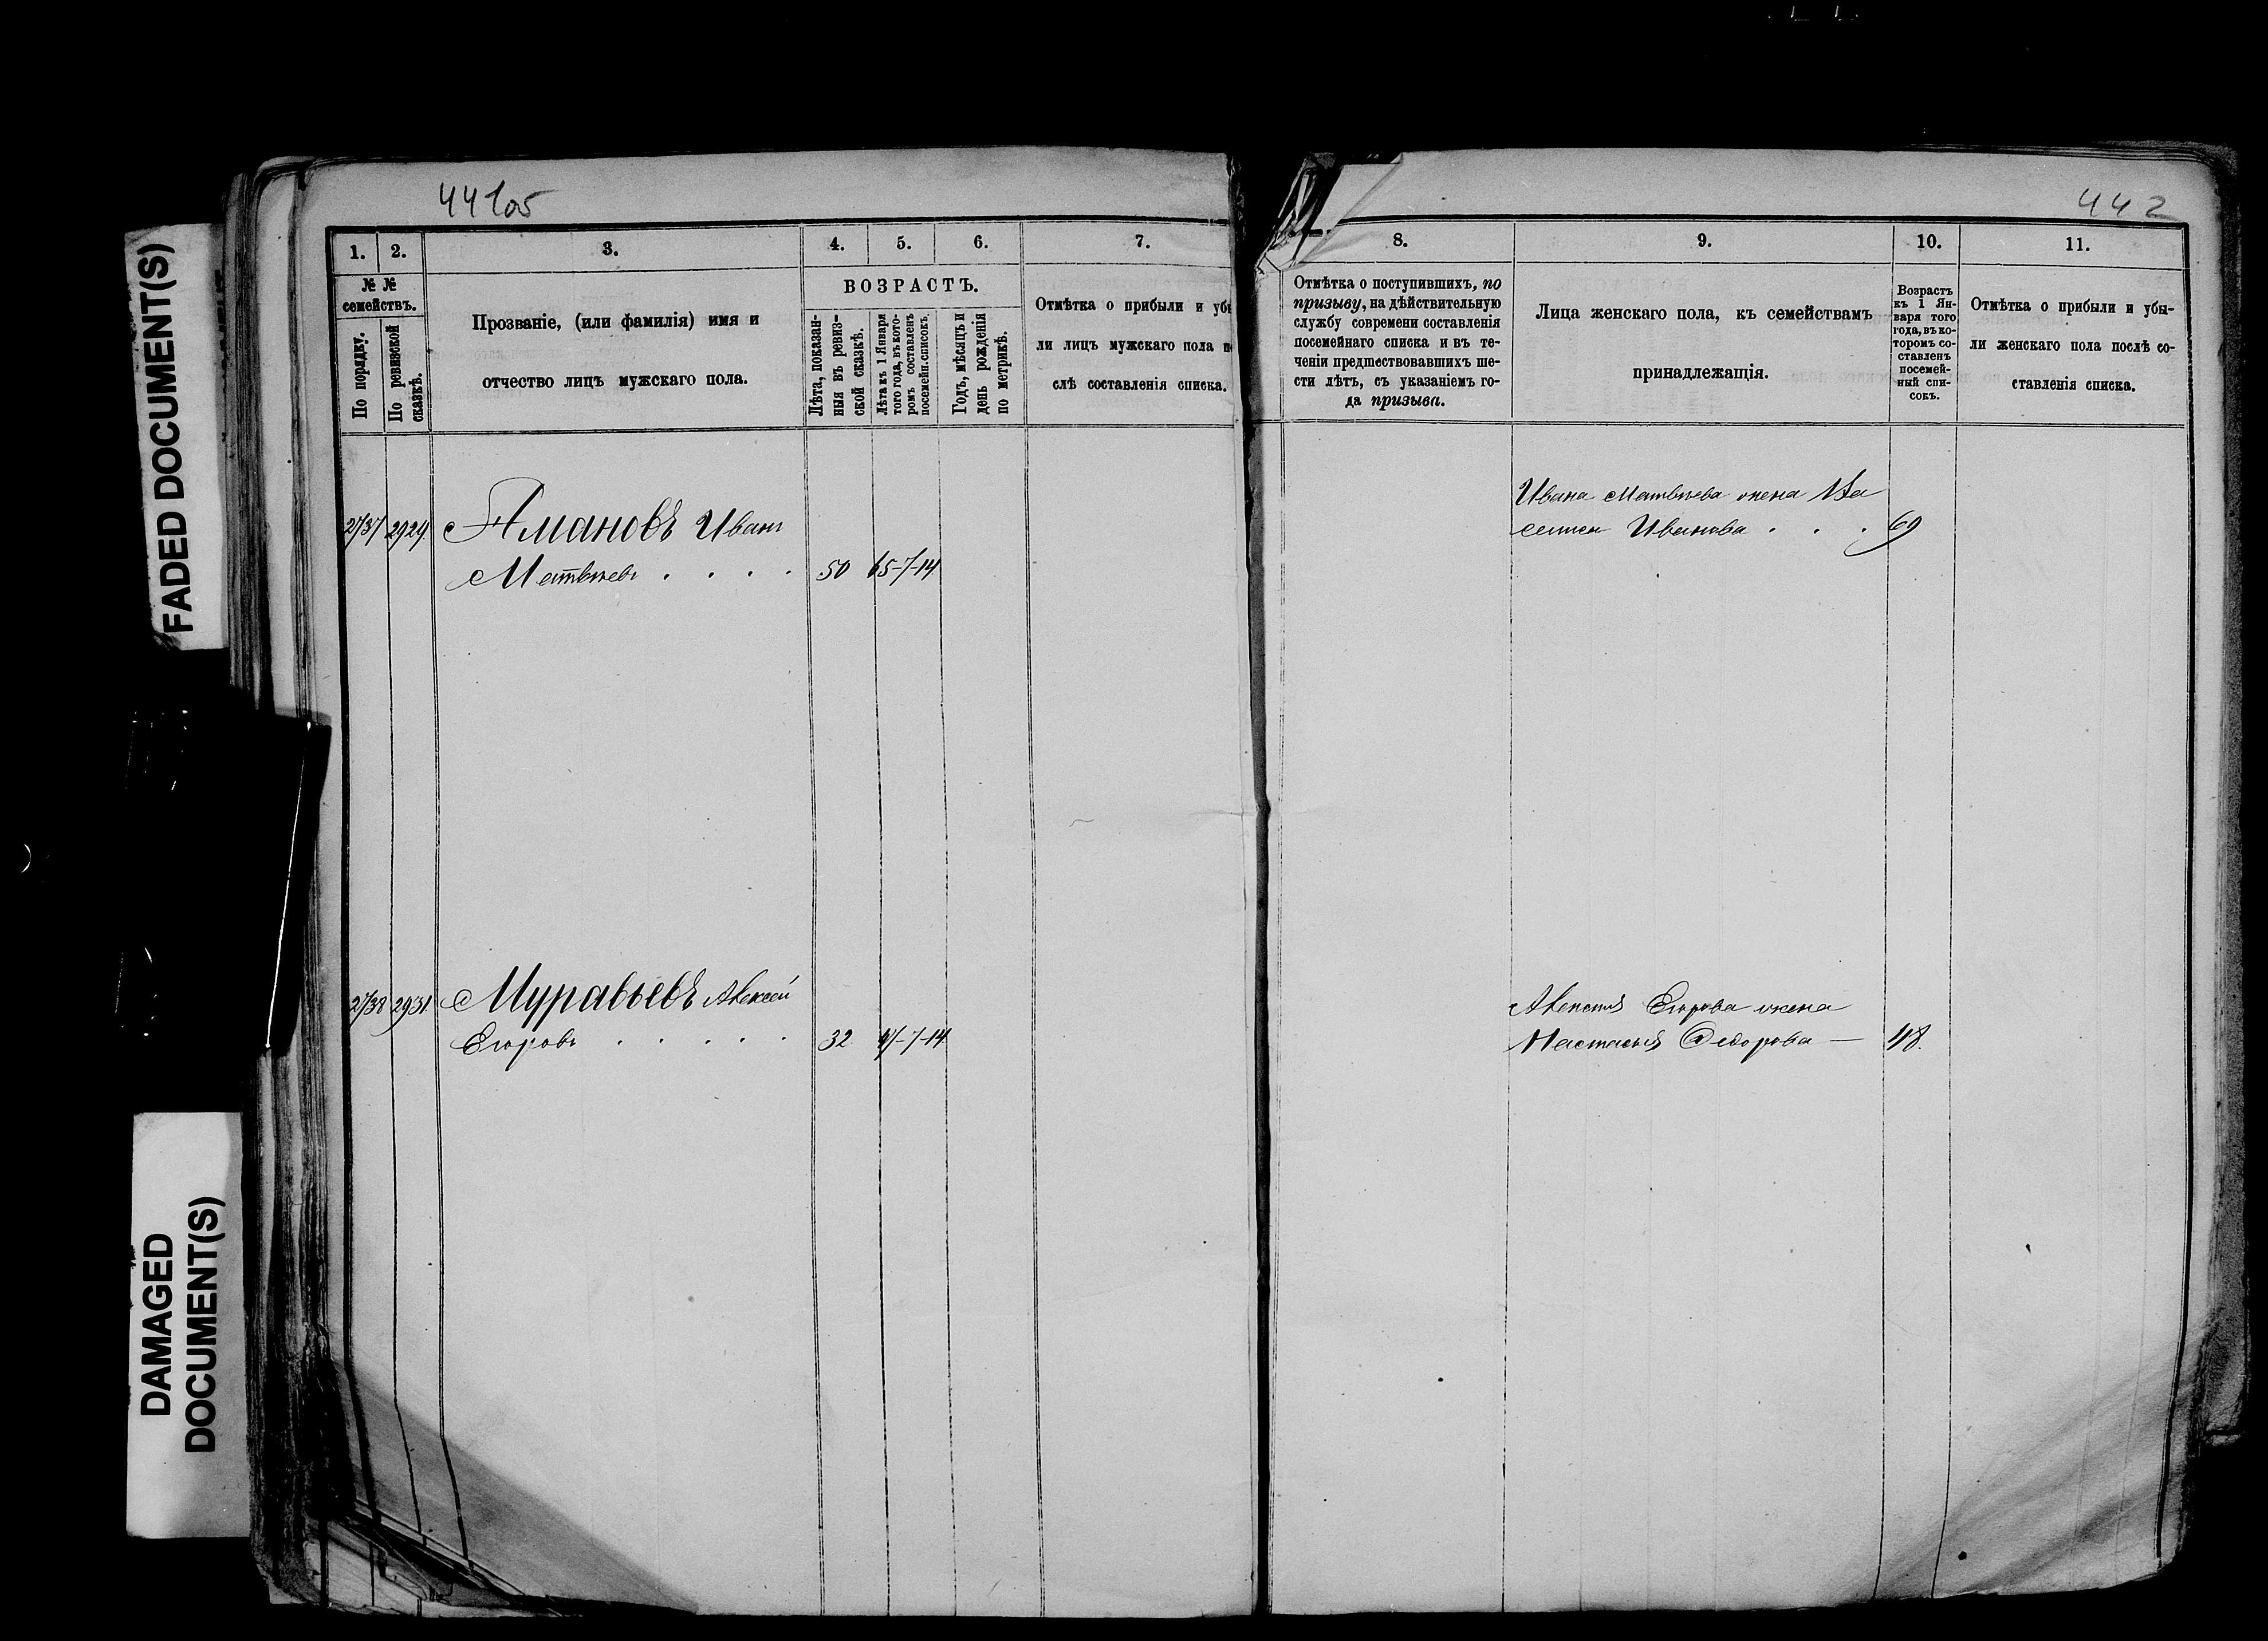 441об
442
1. 2. 3. 4. 5. 6. 7.
№ №
семействъ.
По порядку.
По ревизской
сказкѣ.
Прозваніе, (или фамилія) имя и
отчество лицъ мужскаго пола.
ВОЗРАСТЪ.
Лѣта, показан-
ныя въ ревиз-
ской сказкѣ.
Лѣта къ 1 Января
того года, въ кото-
ромъ составленъ
посемейн. списокъ.
Годъ, мѣсяцъ и
день рожденія
по метрикѣ.
Отмѣтка о прибыли и убы
ли лицъ мужскаго пола п
слѣ составленія списка.
2737 2929. Амановъ Иванъ
Матвѣевъ . . . . 50 65-7-14
2738 2931. Муравьевъ Алексѣй
Егоровъ . . . . . 32. 47-7-14
8. 9. 10. 11.
Отмѣтка о поступившихъ, по
призыву, на дѣйствительную
службу современи составленія
посемейнаго списка и въ те-
ченіи предшествовавшихъ ше-
сти лѣтъ, съ указаніемъ го-
да призыва.
Лица женскаго пола, къ семействамъ
принадлежащія.
Возрастъ
къ 1 Ян-
варя того
года, въ ко-
торомъ со-
ставленъ
посемей-
ный спи-
сокъ.
Отмѣтка о прибыли и убы-
ли женскаго пола послѣ со-
ставленія списка.
Ивана Матвѣева жена Ва
Иванова . . . 69
Алексѣя Егорова жена
Настасья Федорова — 48.
FADED DOCUMENT(S)
DAMAGED
DOCUMENT(S)